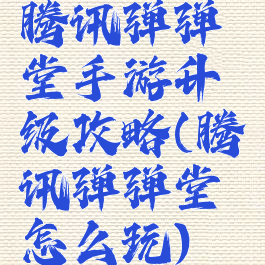 腾讯弹弹
堂手游升
级攻略(腾
讯弹弹堂
怎么玩)